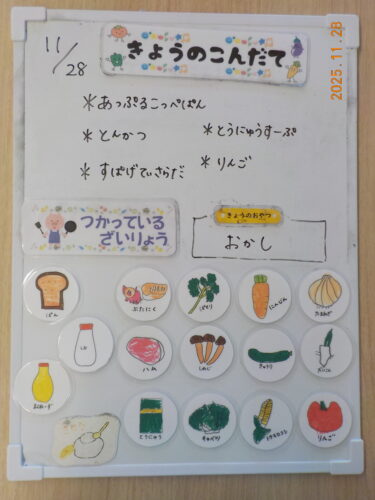 11/28
きょうのこんだて
2025.11.28
*あっぷるこっぺぱん
*とんかつ
*とうにゅうすーぷ
*すぱげてぃさらだ
*りんご
つかっている
ざいりょう
きょうのおやつ
おかし
ぱん
ぶたにく
ぱせり
にんじん
たまねぎ
ハム
しめじ
きゅうり
だいこん
まよねーず
とうにゅう
キャベツ
トウモロコシ
りんご